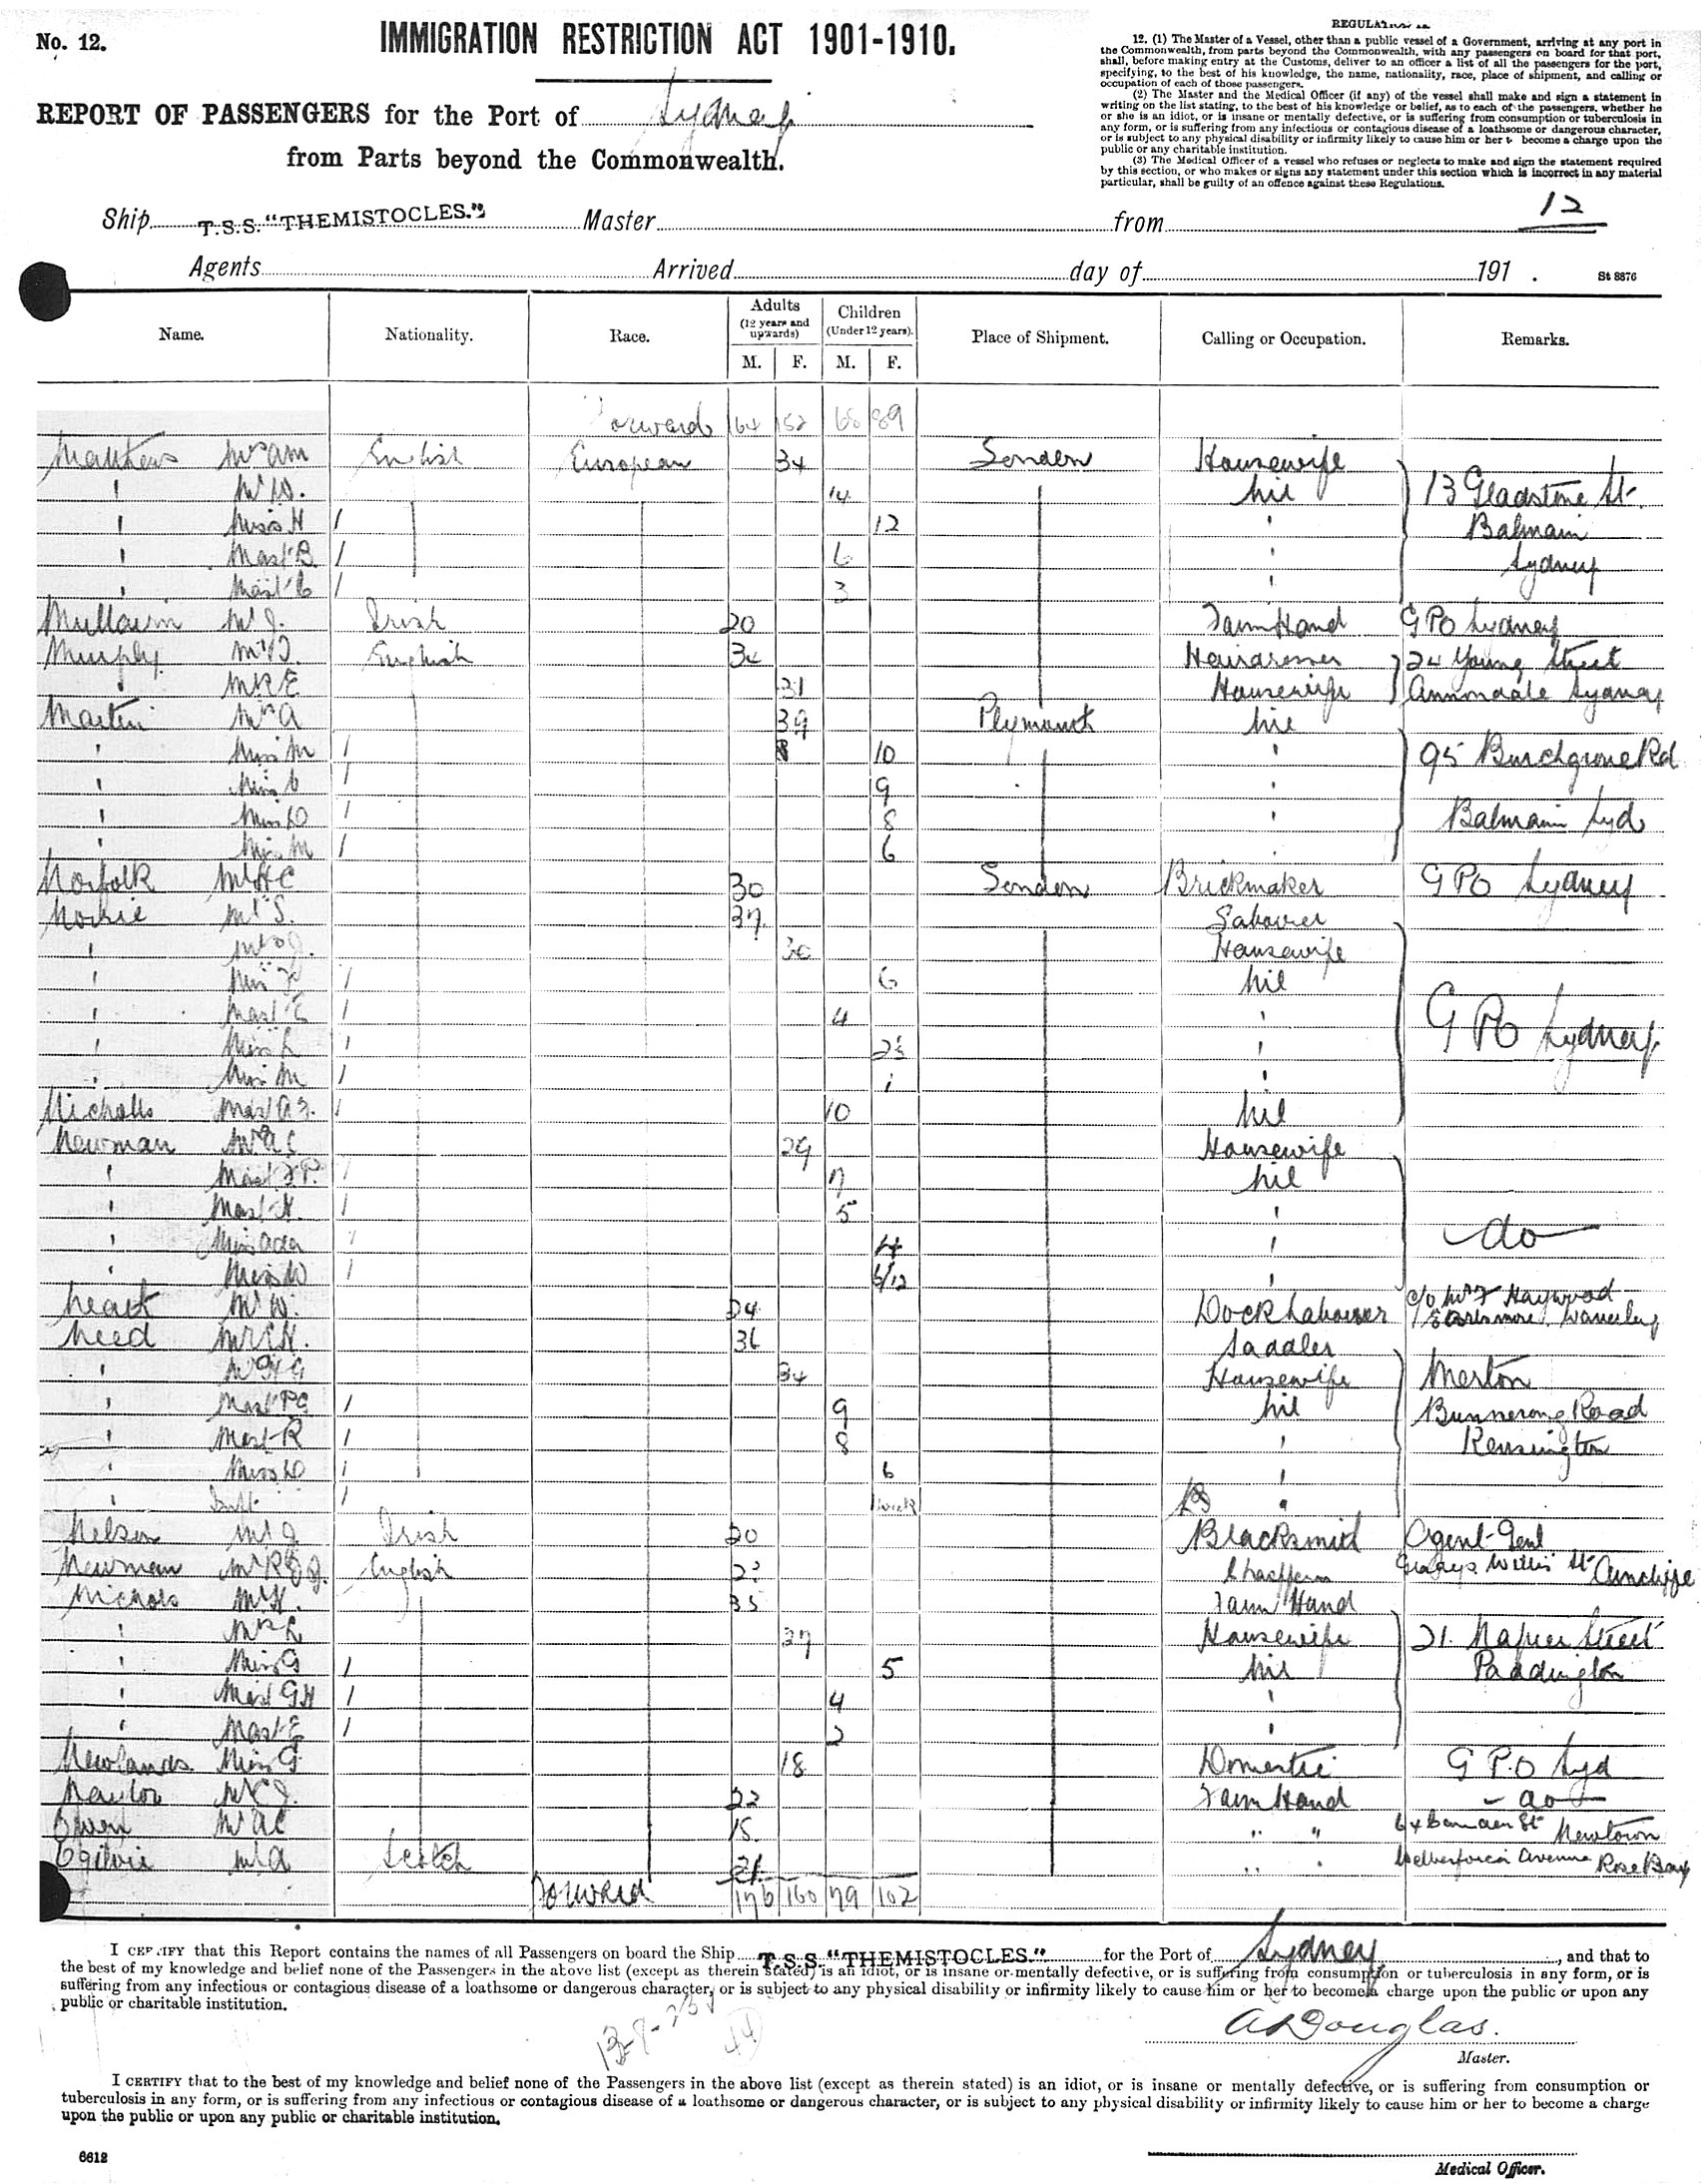 No. 12.
IMMIGRATION RESTRICTION ACT 1901-1910.
REPORT OF PASSENGERS for the Port of Sydney
from Parts beyond the Commonwealth.
12. (1) The Master of a Vessel, other than a public vessel of a Government, arriving at any port in
the Commonwealth, from parts beyond the Commonwealth, with any passengers on board for that port,
shall, before making entry at the Customs, deliver to an officer a list of all the passengers for the port,
specifying, to the best of his knowledge, the name, nationality, race, place of shipment, and calling or
occupation of each of those passengers.
(2) The Master and the Medical Officer (if any) of the vessel shall make and sign a statement in
writing on the list stating, to the best of his knowledge or belief, as to each of the passengers, whether he
or she is an idiot, or is insane or mentally defective, or is suffering from consumption or tuberculosis in
any form, or is suffering from any infectious or contagious disease of a loathsome or dangerous character,
or is subject to any physical disability or infirmity likely to cause him or her to become a charge upon the
public or any charitable institution.
(3) The Medical Officer of a vessel who refuses or neglects to make and sign the statement required
by this section, or who makes or signs any statement under this section which is incorrect in any material
particular, shall be guilty of an offence against these Regulations.
12
Ship T.S.S. "THEMISTOCLES." Master from
Agents Arrived day of 191 .
St 8876
Name. Nationality. Race. Adults (12 years and upwards) Children (Under 12 years). Place of Shipment. Calling or Occupation. Remarks.
M. F. M. F.
Forward 152 89
Matthews Mrs AM English European 34 London Housewife
" Mr W. 14 nil 13 Gladstone St
" Miss H / 12 " Balmain
" Mast B. / 6 " Sydney
" Mast C / 3 "
Mr J. Irish 20 Farm Hand GPO Sydney
Murphy Mr J. English 34 Hairdresser 24 Young Street
" Mrs E 31 Housewife Annandale Sydney
Martin Mrs A 39 Plymouth nil
" Miss M / 10 " 95 Rd
" Miss / 9 "
" Miss D / 8 " Balmain Syd
" Miss M / 6 "
Norfolk Mr HC 30 London Brickmaker GPO Sydney
Mr S. 37 Labourer
" 30 Housewife
" Miss / 6 nil
" Mast / 4 " GPO Sydney
" Miss L / 2½ "
" Miss M / 1 "
Nicholls Mast / 10 nil
Newman Mrs AC 29 Housewife
" Mast P. / 7 nil
" Mast H. / 5 "
" Miss Ada / 4 " do
" Miss W / /12 "
Mr W. 24 Dock Labourer c/o Mrs Haywood
Need Mr CH. 36 Saddler Waverley
" Mrs 34 Housewife Merton
" Mast PG / 9 nil Bunnerong Road
" Mast R / 8 " Kensington
" Miss D / 6 "
" Inft / 1 week "
Nelson Mr J Irish 20 Blacksmith Agent-Genl
Newman Mr English Arncliffe
Nichols Mr H. 35 Farm Hand
" Mrs L 27 Housewife 21 Napier Street
" Miss G / 5 nil Paddington
" Mast GH / 4 "
" Mast E / 2 "
Newlands Miss G 18 Domestic GPO Syd
Naylor Mr C J. 22 Farm Hand - do -
Owen Mr AC 15 " " St Newtown
Ogilvie Mr A Scotch 21 " " Avenue Rose Bay
Forward 176 160 79 102
I CERTIFY that this Report contains the names of all Passengers on board the Ship T.S.S. "THEMISTOCLES." for the Port of Sydney, and that to
the best of my knowledge and belief none of the Passengers in the above list (except as therein stated) is an idiot, or is insane or mentally defective, or is suffering from consumption or tuberculosis in any form, or is
suffering from any infectious or contagious disease of a loathsome or dangerous character, or is subject to any physical disability or infirmity likely to cause him or her to become a charge upon the public or upon any
public or charitable institution.
A Douglas.
Master.
I CERTIFY that to the best of my knowledge and belief none of the Passengers in the above list (except as therein stated) is an idiot, or is insane or mentally defective, or is suffering from consumption or
tuberculosis in any form, or is suffering from any infectious or contagious disease of a loathsome or dangerous character, or is subject to any physical disability or infirmity likely to cause him or her to become a charge
upon the public or upon any public or charitable institution.
6612
Medical Officer.